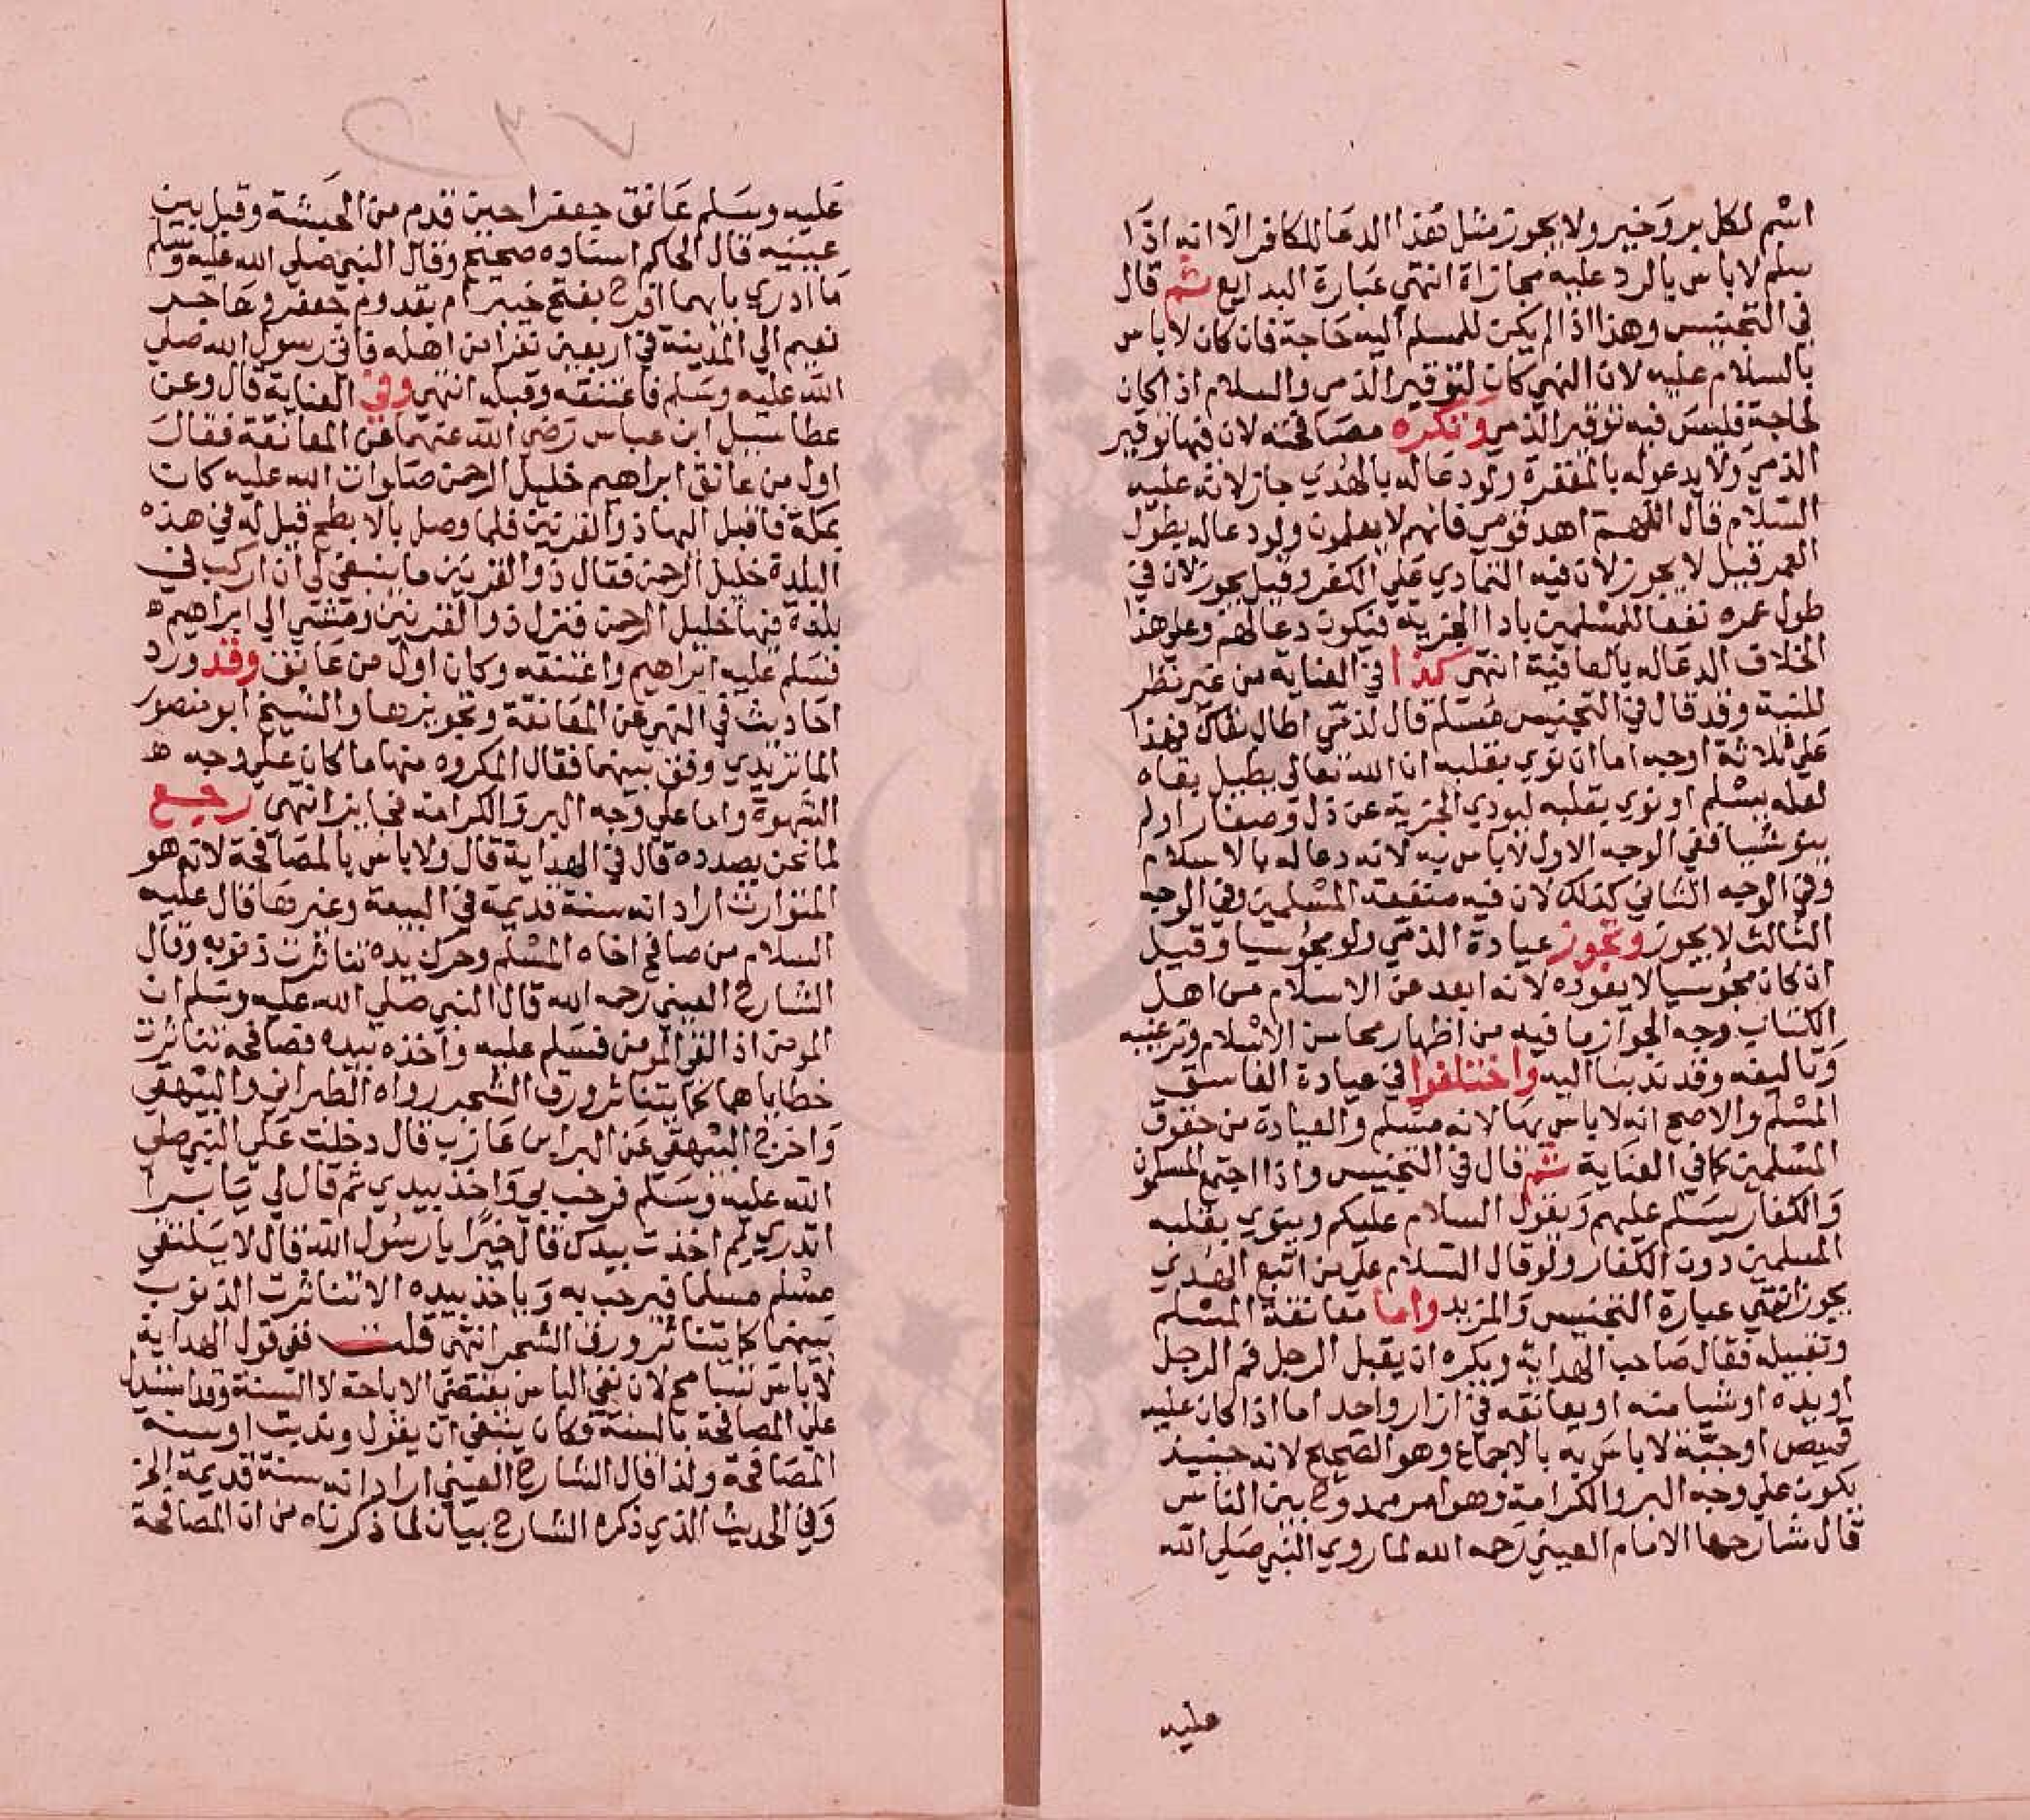 اسم لكل بر وخير ولا يجوز مثل هذا الدعا للكافر الا انه اذا
سلم لا باس بالرد عليه مجازاة انتهي عبارة البدايع ثم قال
في التجنيس وهذا اذا لم يكن للمسلم اليه حاجة فان كان لا باس
بالسلام عليه لان النهي كان لتوقير الذمي والسلام اذا كان
لحاجة فليس فيه توقير الذمي وتكره مصافحته لان فيها توقير
الذمي ولا يدعو له بالمغفرة ولو دعا له بالهدي جاز لانه عليه
السلام قال اللهم اهد قومي فانهم لا يعلمون ولو دعا له بطول
العمر قيل لا يجوز لان فيه التمادي علي الكفر وقيل يجوز لان في
طول عمره نفعا للمسلمين بادا الجزية فيكون دعا لهم وعلي هذا
الخلاف الدعا له بالعافية انتهي كذا في العناية من غير نظر
للنية وقد قال في التجنيس مسلم قال لذمي اطال بقاك فهذا
علي ثلاثة اوجه اما ان نوي بقلبه ان الله تعالي يطيل بقاه
لعله يسلم او نوي بقلبه ليودي الجزية عن ذل وصغار او لم
ينو شيا ففي الوجه الاول لا باس به لانه دعا له بالاسلام
وفي الوجه الثاني كذلك لان فيه منفعة المسلمين وفي الوجه
الثالث لا يجوز وتجوز عيادة الذمي ولو مجوسيا وقيل
ان كان مجوسيا لا يعوده لانه ابعد عن الاسلام من اهل
الكتاب وجه الجواز ما فيه من اظهار محاسن الاسلام وترغيبه
وتاليفه وقد ندبنا اليه واختلفوا في عيادة الفاسق
المسلم والاصح انه لا باس بها لانه مسلم والعيادة من حقوق
المسلمين كما في العناية ثم قال في التجنيس واذا اجتمع المسلمون
والكفار يسلم عليهم ويقول السلام عليكم وينوي بقلبه
المسلمين دون الكفار ولو قال السلام علي من اتبع الهدي
يجوز انتهي عبارة التجنيس والمزيد واما معانقة المسلم
وتقبيله فقال صاحب الهداية ويكره ان يقبل الرجل فم الرجل
او يده او شيا منه او يعانقه في ازار واحد اما اذا كان عليه
قميص او جبة لا باس به بالاجماع وهو الصحيح لانه حينيذ
يكون علي وجه البر والكرامة وهو امر ممدوح بين الناس
قال شارحها الامام العيني رحمه الله لما روي النبي صلي الله
عليه
عليه وسلم عانق جعفرا حين قدم من الحبشة وقبل بين
عينيه قال الحاكم اسناده صحيح وقال النبي صلي الله عليه وسلم
ما ادري بايهما افرح بفتح خيبر ام بقدوم جعفر وهاجر
نعيم الي المدينة في اربعين نفرا من اهله فاتي رسول الله صلي
الله عليه وسلم فاعتنقه وقبله انتهي وفي العناية قال وعن
عطا سيل ابن عباس رضي الله عنهما عن المعانقة فقال
اول من عانق ابراهيم خليل الرحمن صلوات الله عليه كان
بمكة فاقبل اليها ذو القرنين فلما وصل بالابطح قيل له في هذه
البلدة خليل الرحمن فقال ذو القرنين ما ينبغي لي ان اركب في
بلدة فيها خليل الرحمن فنزل ذو القرنين ومشي الي ابراهيم
فسلم عليه ابراهيم واعتنقه وكان اول من عانق وقد ورد
احاديث في النهي عن المعانقة وتجويزها والشيخ ابو منصور
الماتريدي وفق بينهما فقال المكروه منها ما كان علي وجه
الشهوة واما علي وجه البر والكرامة فجايز انتهي رجع
لما نحن بصدده قال في الهداية قال ولا باس بالمصافحة لانه هو
المتوارث اراد انه سنة قديمة في البيعة وغيرها قال عليه
السلام من صافح اخاه المسلم وحرك يده تناثرت ذنوبه وقال
الشارح العيني رحمه الله قال النبي صلي الله عليه وسلم ان
المومن اذا لقي المومن فسلم عليه واخذه بيده فصافحه تناثرت
خطاياهما كما يتناثر ورق الشجر رواه الطبراني والبيهقي
واخرج البيهقي عن البرا بن عازب قال دخلت علي النبي صلي
الله عليه وسلم فرحب بي واخذ بيدي ثم قال لي يا برا
اتدري لم اخذت بيدك قال خيرا يا رسول الله قال لا يلتقي
مسلم مسلما فيرحب به وياخذ بيده الا تناثرت الذنوب
بينهما كما يتناثر ورق الشجر انتهي قلت ففي قول الهداية
لا باس تسامح لان نفي الباس يقتضي الاباحة لا السنة وقد استدل
علي المصافحة بالسنة وكان ينبغي ان يقول وندبت او سنة
المصافحة ولذا قال الشارح العيني اراد انه سنة قديمة الخ
وفي الحديث الذي ذكره الشارح بيان لما ذكرناه من ان المصافحة